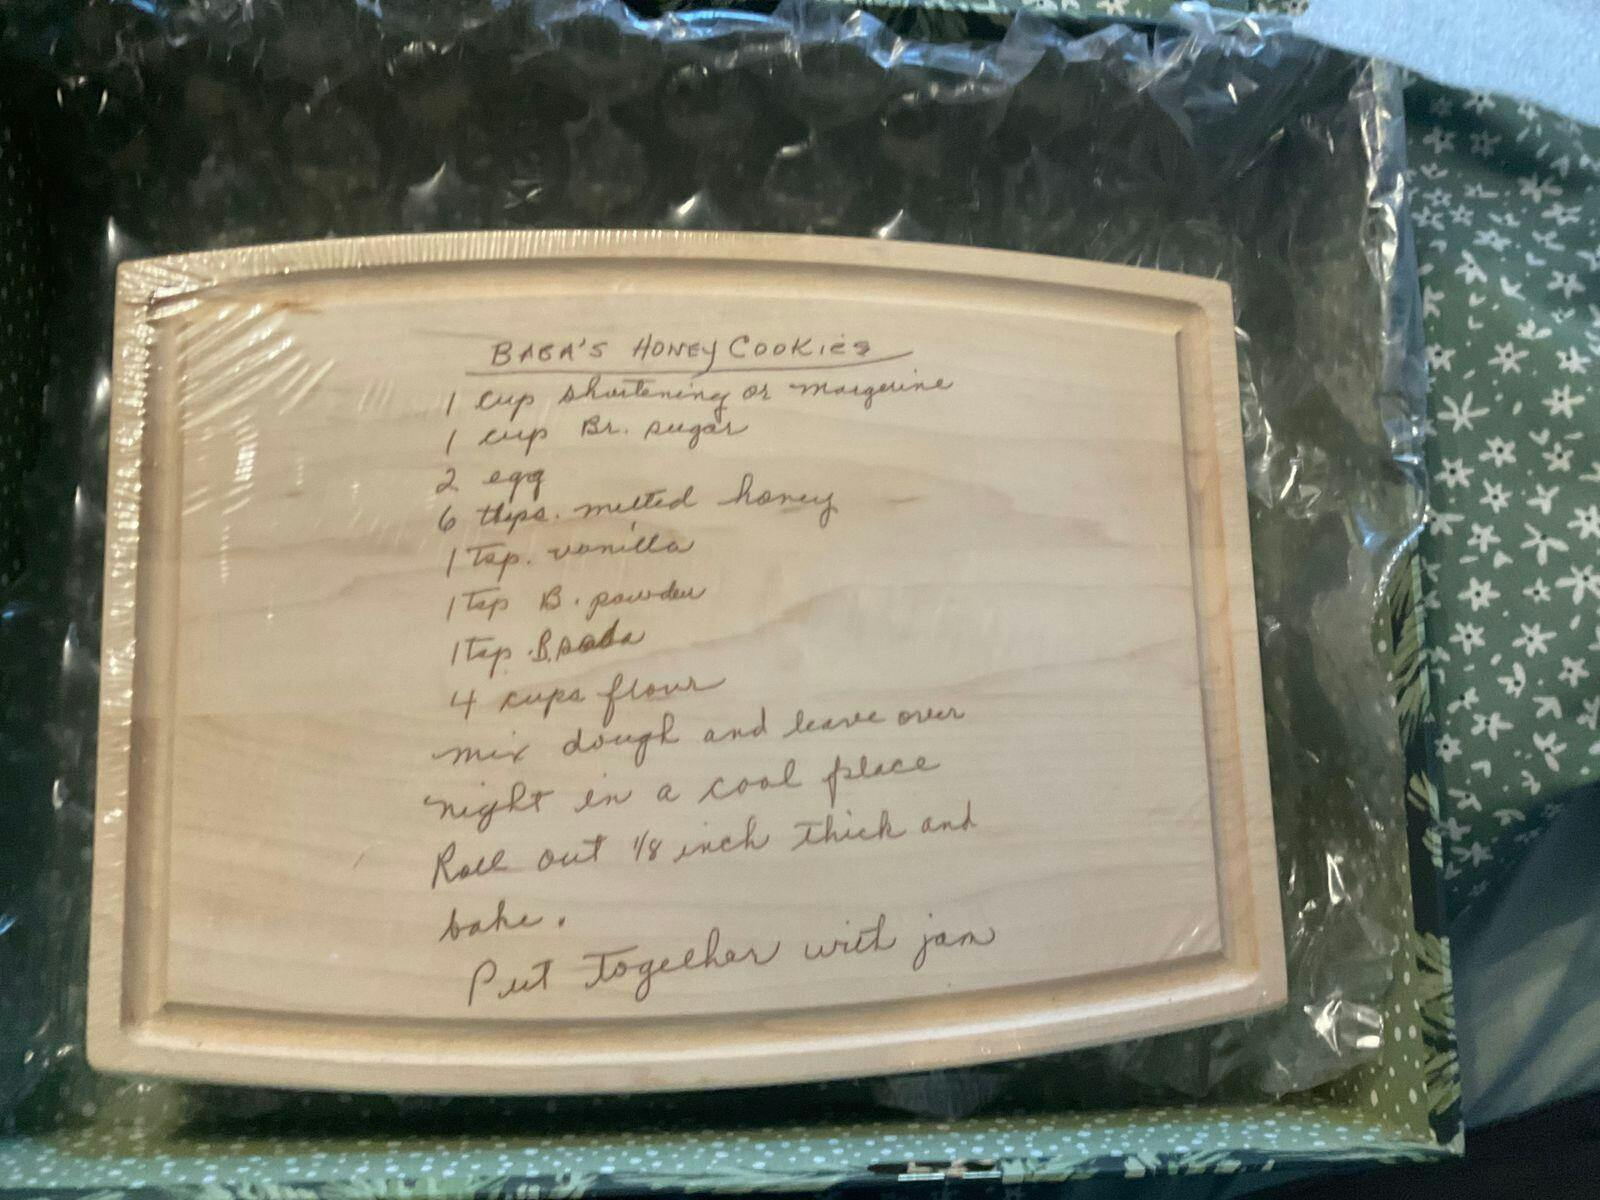 BABA'S HONEY COOKiES
1 cup shortening or margerine
1 cup Br. sugar
2 egg
6 tbps. melted honey
1 Tsp. vanilla
1 Tsp B. powder
1 Tsp B. soda
4 cups flour
mix dough and leave over
night in a cool place
Roll out 1/8 inch thick and
bake.
Put together with jam